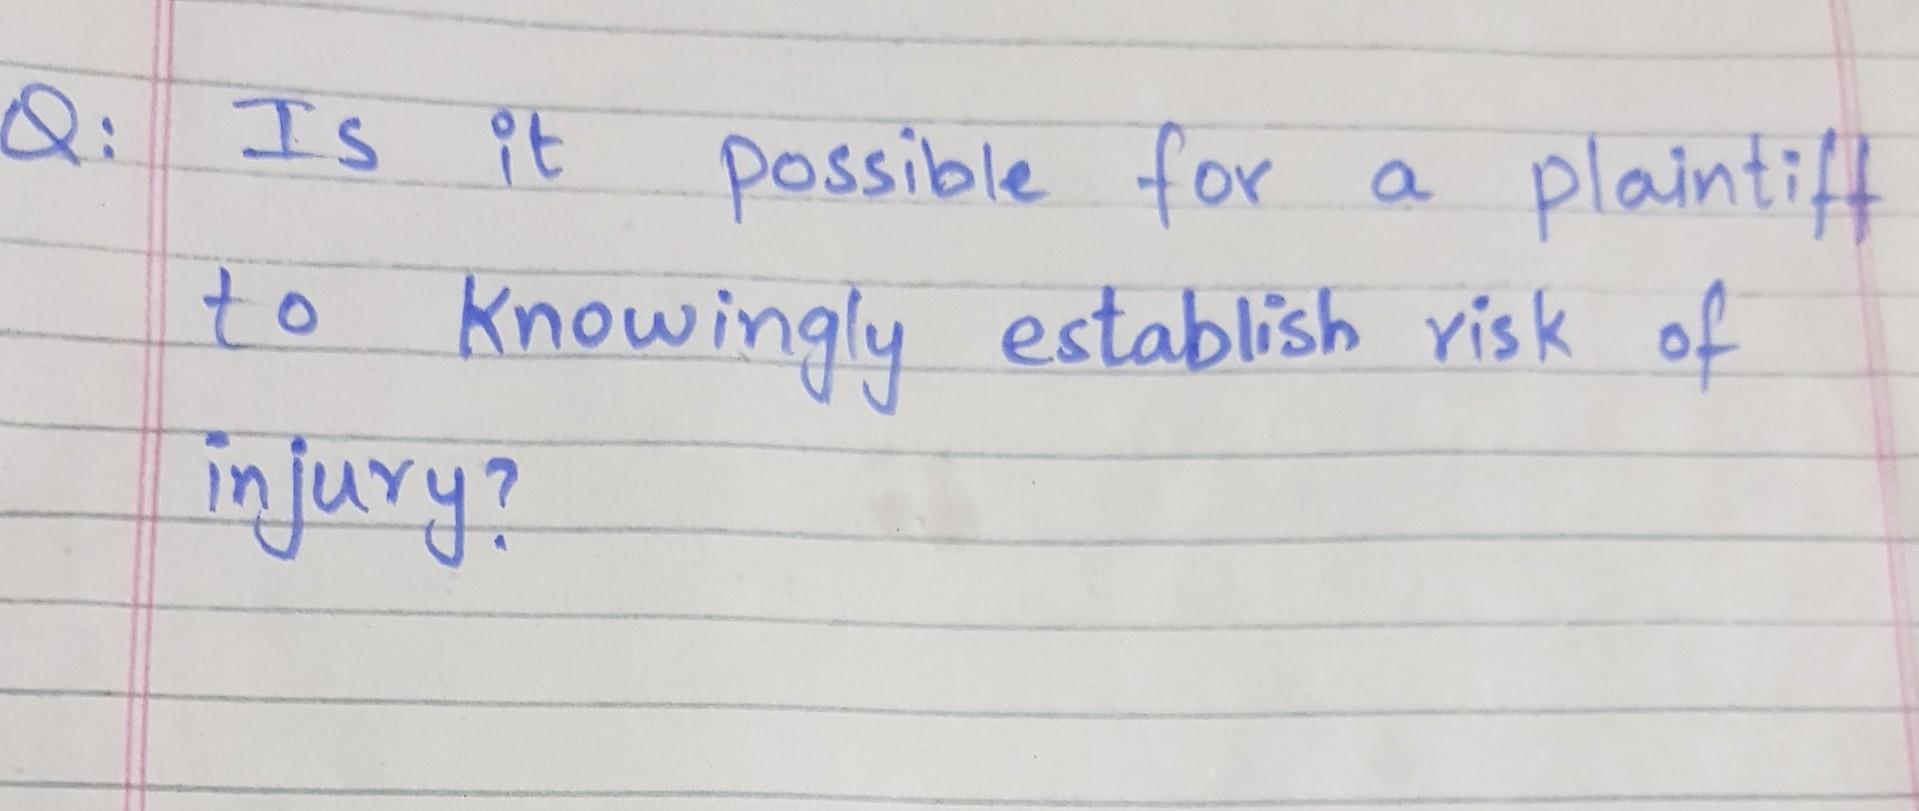 Q: Is it possible for a plaintiff
to knowingly establish risk of
injury?